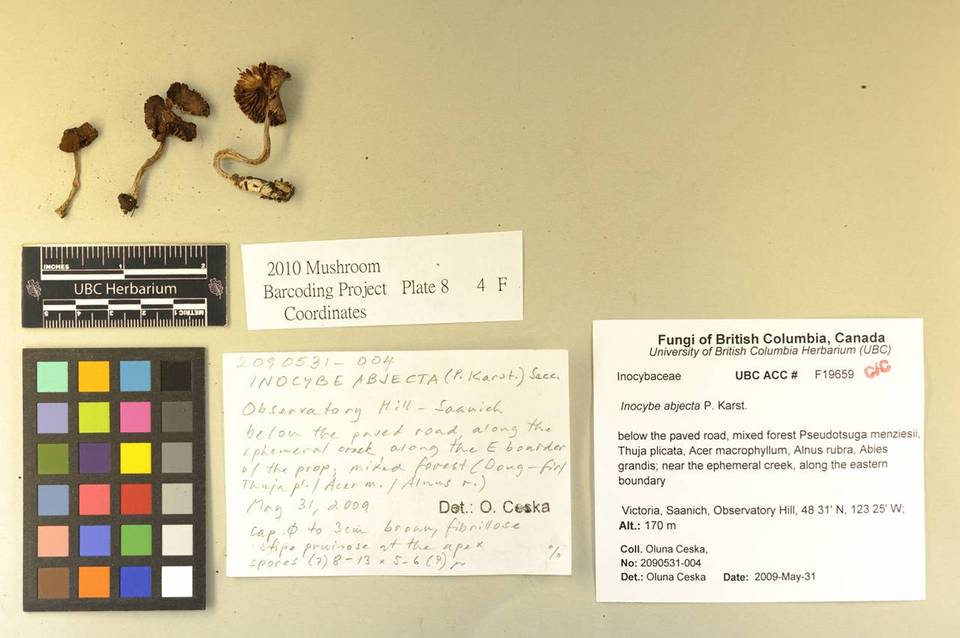 INCHES 1 2
UBC Herbarium
5 4 3 2 METRIC 1
2010 Mushroom
Barcoding Project Plate 8 4 F
Coordinates
2090531-004
INOCYBE ABJECTA (P. Karst.) Sacc.
Observatory Hill - Saanich
below the paved road, along the
ephemeral creek, along the E boarder
of the prop; mixed forest (Doug-fir/
Thuja pl./ Acer m./ Alnus r.)
May 31, 2009
Det.: O. Ceska
cap Ø to 3cm brown, fibrillose
stipe pruinose at the apex
spores (7) 8-13 x 5-6 (7) μ
%
Fungi of British Columbia, Canada
University of British Columbia Herbarium (UBC)
Inocybaceae UBC ACC # F19659 C/C
Inocybe abjecta P. Karst.
below the paved road, mixed forest Pseudotsuga menziesii,
Thuja plicata, Acer macrophyllum, Alnus rubra, Abies
grandis; near the ephemeral creek, along the eastern
boundary
Victoria, Saanich, Observatory Hill, 48 31' N, 123 25' W;
Alt.: 170 m
Coll. Oluna Ceska,
No: 2090531-004
Det.: Oluna Ceska Date: 2009-May-31